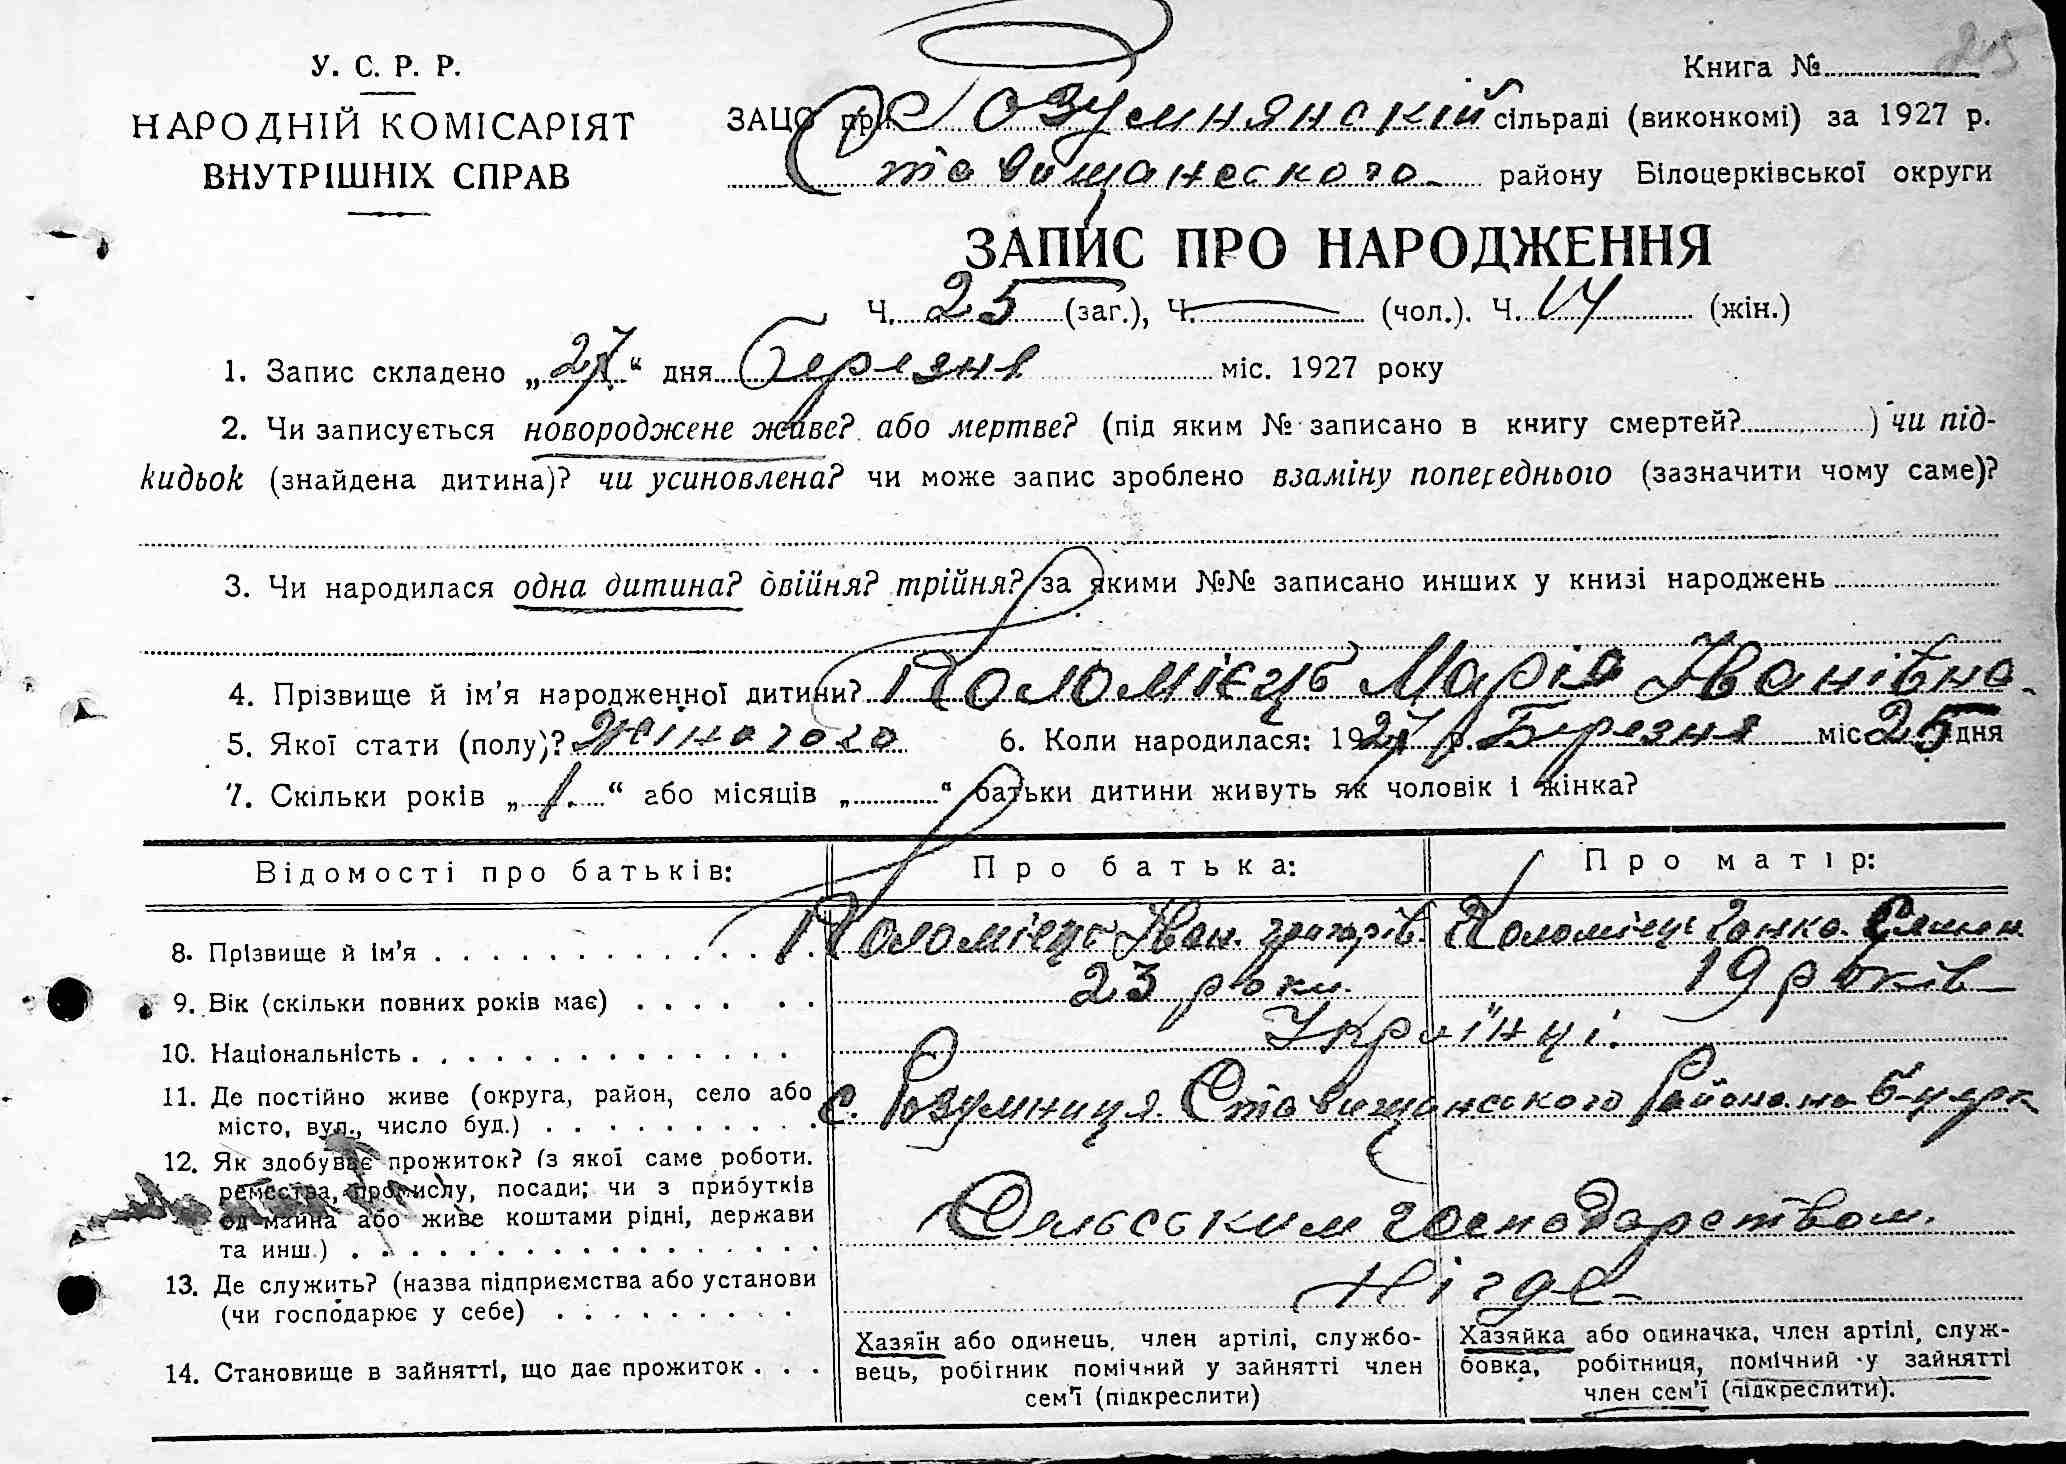 У. С. Р. Р.
НАРОДНІЙ КОМІСАРІЯТ
ВНУТРІШНІХ СПРАВ
Книга №
ЗАЦС при Розумнянскій сільраді (виконкомі) за 1927 р.
Ставищанеского району Білоцерківської округи
ЗАПИС ПРО НАРОДЖЕННЯ
Ч. 25 (заг.), Ч. — (чол.). Ч. 14 (жін.)
1. Запис складено „27“ дня Березня міс. 1927 року
2. Чи записується новороджене живе? або мертве? (під яким № записано в книгу смертей? ) чи під-
кидьок (знайдена дитина)? чи усиновлена? чи може запис зроблено взаміну попереднього (зазначити чому саме)?
3. Чи народилася одна дитина? двійня? трійня? за якими №№ записано инших у книзі народжень
4. Прізвище й ім'я народженної дитини? Коломієць Марія Іванівна
5. Якої стати (полу)? Жіночого 6. Коли народилася: 1927 р. Березня міс 25 дня
7. Скільки років „1.“ або місяців „ “ батьки дитини живуть як чоловік і жінка?
Відомості про батьків: Про батька: Про матір:
8. Прізвище й ім'я Коломієць Іван. григорів. Коломієць Ганка. Семен.
9. Вік (скільки повних років має) 23 роки. 19 років
10. Національність Україїнці.
11. Де постійно живе (округа, район, село або
місто, вул., число буд.) с. Розумниця Ставищанського Района на Б-церк
12. Як здобуває прожиток? (з якої саме роботи.
ремества, промислу, посади; чи з прибутків
од майна або живе коштами рідні, держави
та инш.) Сельським господарством.
13. Де служить? (назва підприємства або установи
(чи господарює у себе) Нігде
14. Становище в зайнятті, що дає прожиток
Хазяїн або одинець, член артілі, службо-
вець, робітник помічний у зайнятті член
сем'ї (підкреслити)
Хазяйка або одиначка, член артілі, служ-
бовка, робітниця, помічний у зайнятті
член сем'ї (підкреслити).